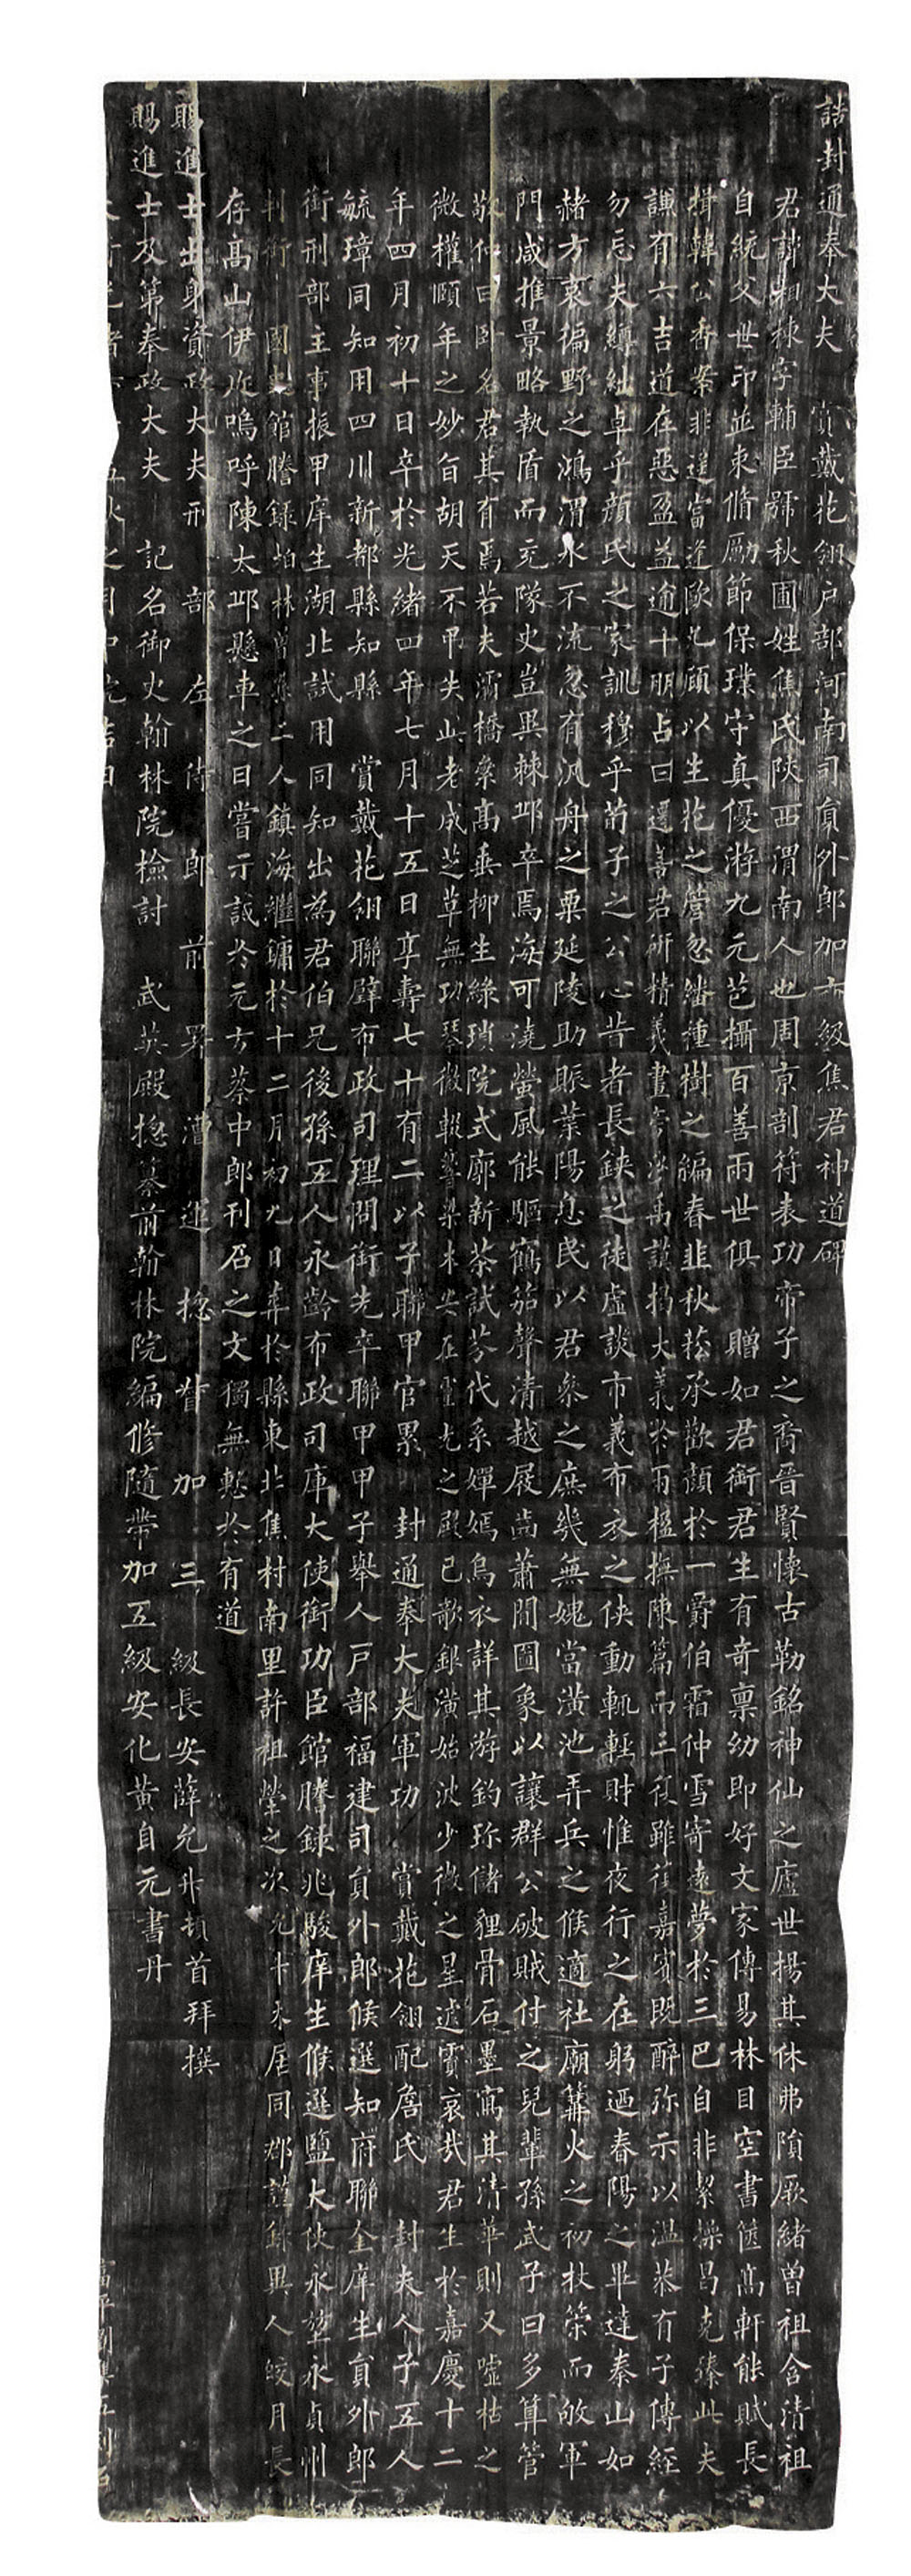 誥封通奉大夫 賞戴花翎戶部河南司員外郎加六級焦君神道碑
君諱相棟字輔臣號秋圃姓焦氏陝西渭南人也周京剖符表功帝子之裔晉賢懷古勒銘神仙之廬世揚其休弗隕厥緒曾祖含清祖
自統父世印並束脩勵節保璞守真優游九元苞攝百善兩世俱 贈如君銜君生有奇禀幼即好文家傳易林目空書篋萬軒能賦長
揖韓公香案非遥富逢歐九顧以生花之管忽繙種樹之編春韭秋菘承歡顏於一爵伯霜仲雪寄遠夢於三巴自非絜操昌克臻此夫
謙有六吉道在惡盈益逾十朋占曰遷善君研精義畫 謨揭大義於兩楹撫陳篇而三復雖復嘉賓既醉弥示以溫恭有子傳經
勿忘夫縛紲卓乎顏氏之家訓穆乎荀子之公心昔者長鋏之徒虛談市義布衣之俠動輒輕財惟夜行之在躬迺春陽之畢達秦山如
赭方衷徧野之鴻渭水不流忽有汎舟之粟延陵助賑葉陽息民以君參之庶幾無媿當潢池弄兵之候適社廟篝火之初杖策而啟軍
門咸推景略執盾而充隊史豈異棘邛卒焉海可澆螢風能驅鶴笳聲清越屐齒蕭閒圖象以讓群公破賊付之兒輩孫武子曰多算管
敬仲曰臥名君其有焉若夫灞橋棠高垂柳生綠瑣院式廓新茶試芬代系嬋嫣烏衣詳其游釣珎儲貍骨石墨寫其清華則又噓枯之
微權頤年之妙旨胡天不弔失此老成芝草無功琴微輟響梁木安在靈光之殿已歌銀潢始波少微之星遽霣哀哉君生於嘉慶十二
年四月初十日卒於光緒四年七月十五日享壽七十有二以子聯甲官累 封通奉大夫軍功 賞戴花翎配詹氏 封夫人子五人
毓璋同知用四川新都縣知縣 賞戴花翎聯壁布政司理問銜先卒聯甲甲子舉人戶部福建司員外郎候選知府聯奎庠生員外郎
銜刑部主事振甲庠生湖北試用同知出為君伯兄後孫五人永齡布政司庫大使銜功臣館謄錄兆駿庠生候選鹽大使永堃永貞州
判銜 國史館謄錄柏林曾孫二人鎮海繼墉於十二月初九日葬於縣東北焦村南里許祖塋之次允升未居同郡謹 異人皎月長
存高山伊仰嗚呼陳太邱懸車之日嘗示誡於元方蔡中郎刊石之文獨無慙於有道
賜進士出身資政大夫刑部左侍郎前署漕運總督加三級長安薛允升頓首拜撰
賜進士及第奉政大夫 記名御史翰林院檢討 武英殿總纂前翰林院編修隨帶加五級安化黃自元書丹
富平劉 五刻石